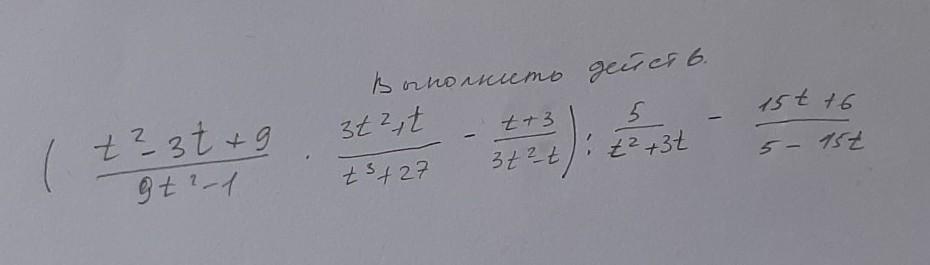 Выполнить действ.
( \frac{t^2-3t+9}{9t^2-1} \cdot \frac{3t^2+t}{t^3+27} - \frac{t+3}{3t^2-t} ) : \frac{5}{t^2+3t} - \frac{15t+6}{5-15t}